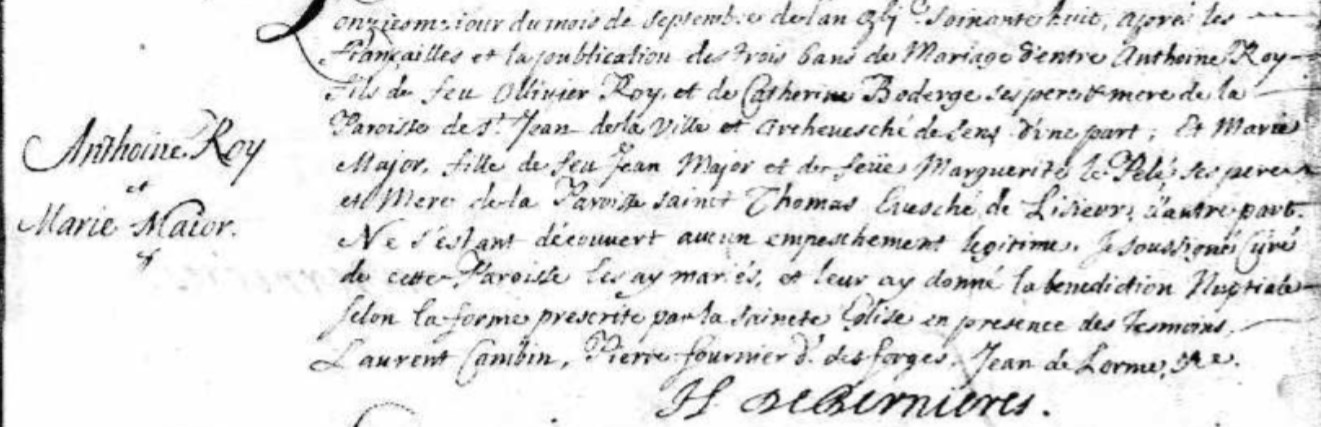 onziesme jour du mois de septembre de l'an gbjc soixante huit, apres les
fiançailles et la publication des trois bans de Mariage d'entre Anthoine Roy
fils de feu Ollivier Roy, et de Catherine Boderge ses pere & mere de la
Paroisse de St. Jean de la Ville et Archevesché de Sens d'une part; Et Marie
Major, fille de feu Jean Major et de feüe Marguerite le Pelé ses pere
et Mere de la Paroisse sainct Thomas Evesché de Lisieux d'autre part.
Ne s'estant découvert aucun empeschement legitime. Je soussigné Curé
de cette Paroisse les ay mariés, et leur ay donné la benediction Nuptiale
selon la forme prescrite par la saincte Eglise en presence des tesmoins
Laurent Cambin, Pierre fournier d. des forges, Jean de Lorme, &c.
H. de Bernieres.
Anthoine Roy
et
Marie Maior.